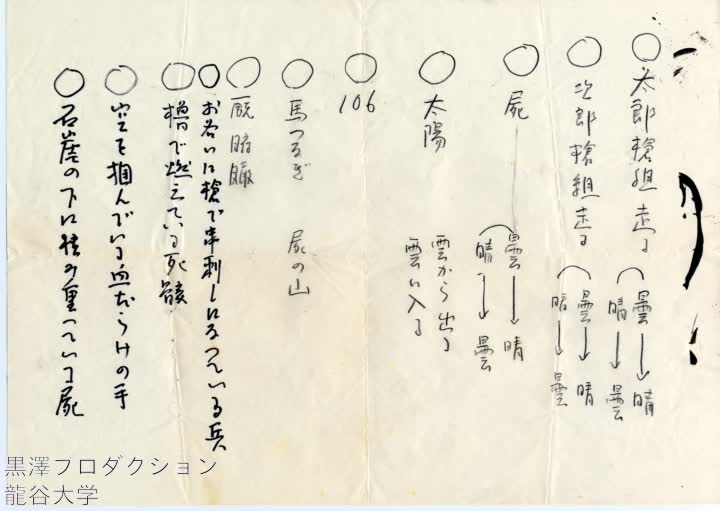 ○太郎槍組走る 曇→晴 晴→曇
○次郎槍組走る 曇→晴 晴→曇
○屍 曇→晴 晴→曇
○太陽 雲から出る 雲に入る
○106
○馬つるぎ 屍の山
○厩
○お互いに槍で串刺しになっている兵
○櫓で燃えている死骸
○空を掴んでいる血だらけの手
○石崖の下に積み重っている屍
黒澤プロダクション
龍谷大学